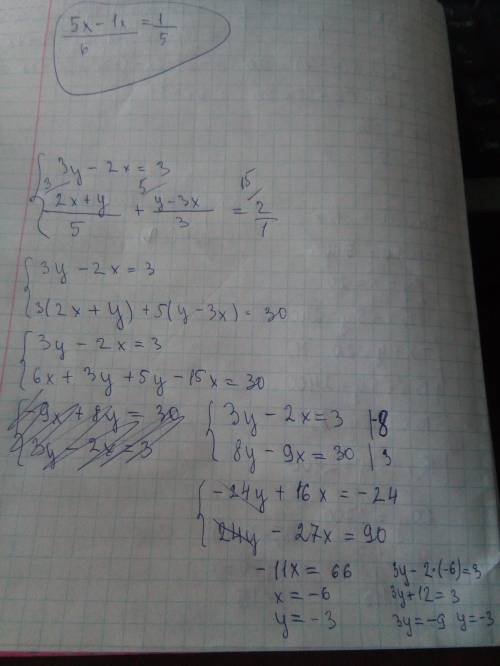 5x - 1x = 1
6 5
3y - 2x = 3
3 5 15
2x + y + y - 3x = 2
5 3 1
3y - 2x = 3
3(2x + y) + 5(y - 3x) = 30
3y - 2x = 3
6x + 3y + 5y - 15x = 30
-9x + 8y = 30 3y - 2x = 3 |-8
3y - 2x = 3 8y - 9x = 30 | 3
-24y + 16x = -24
24y - 27x = 90
-11x = 66 3y - 2·(-6) = 3
x = -6 3y + 12 = 3
y = -3 3y = -9 y = -3